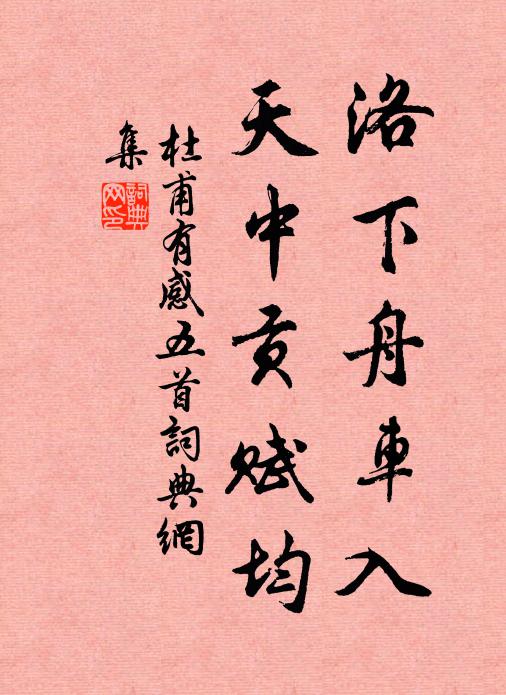 洛下舟車入
天中貢賦均
杜甫有感五首詞典網
集
詞典網印